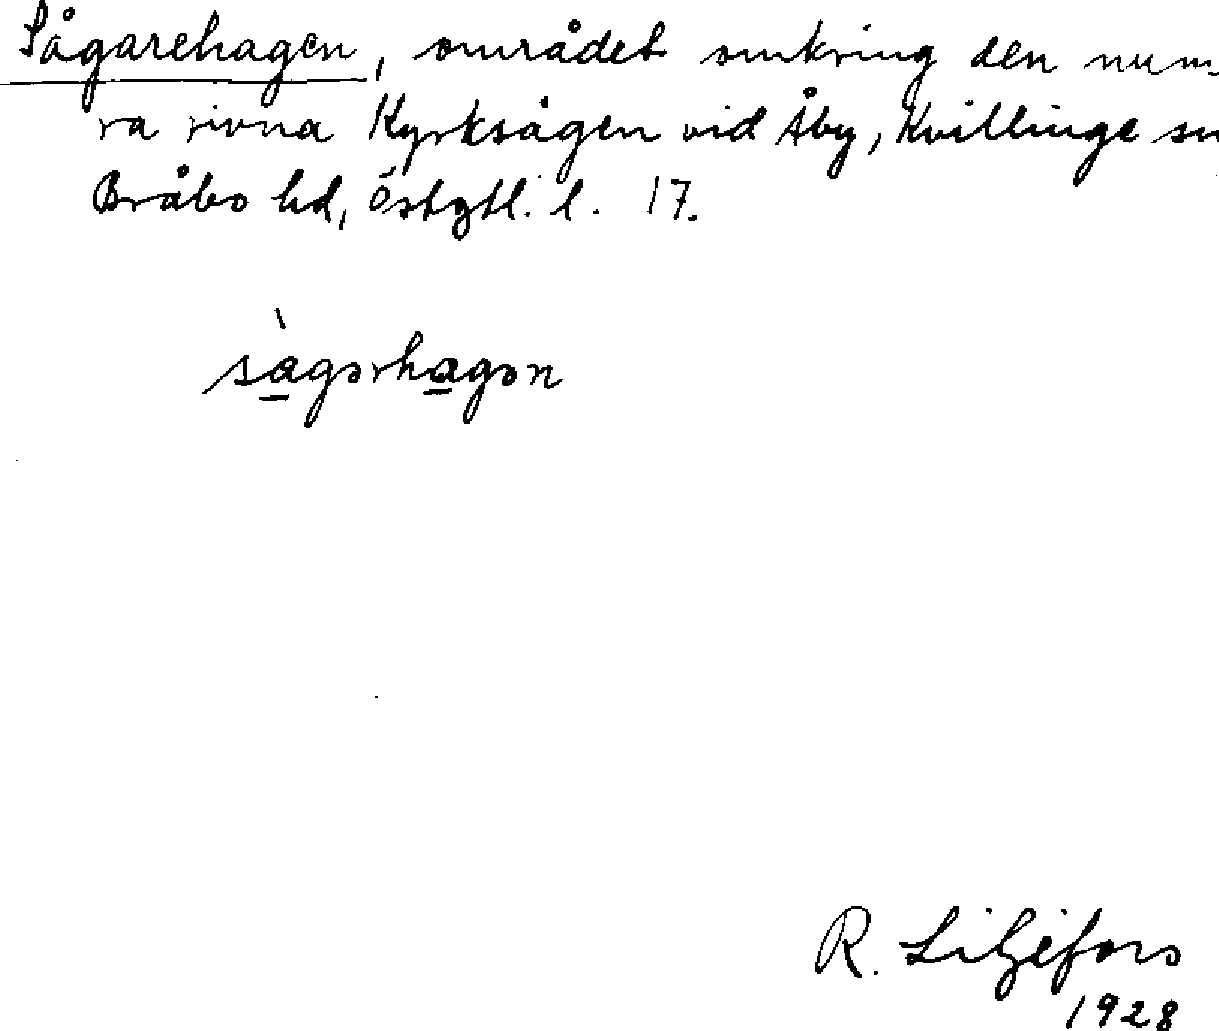 Sågarehagen, området omkring den num-
ra rivna Kyrksågen vid Åby, Kvillinge sn
Bråbo hd, Östgtl. l. 17.
sàgərhagən
R. Liljefors
1928